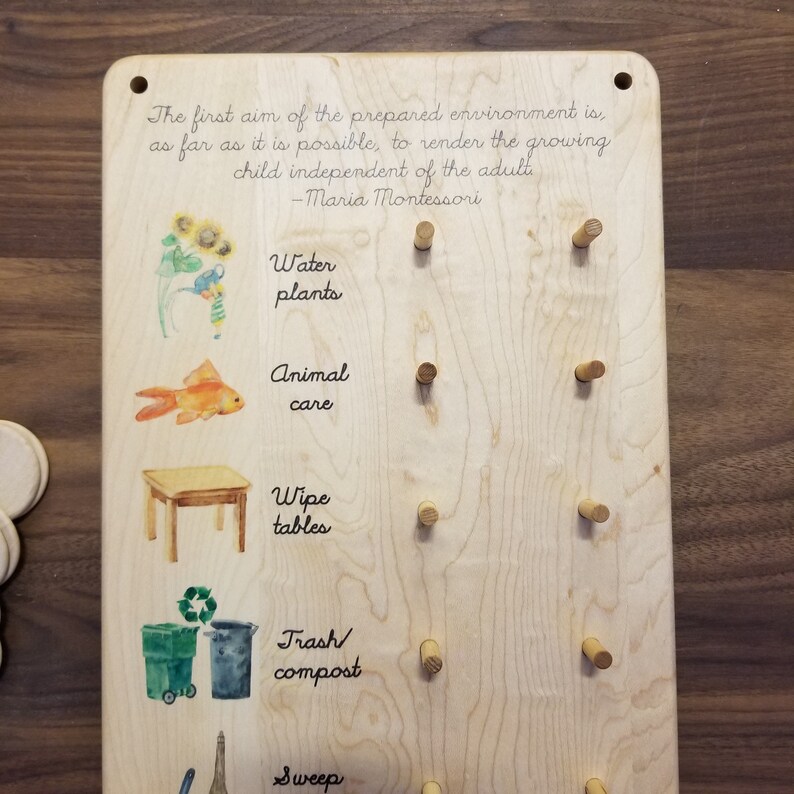 The first aim of the prepared environment is,
as far as it is possible, to render the growing
child independent of the adult.
-Maria Montessori
Water
plants
Animal
care
Wipe
tables
Trash/
compost
Sweep